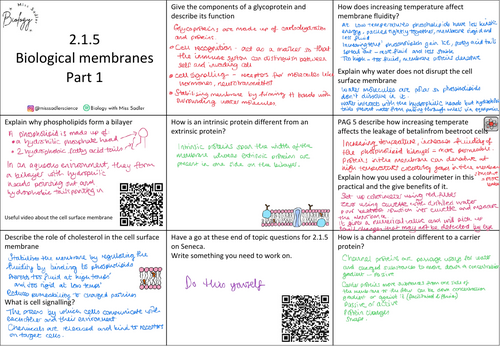 Miss Sadler
Biology
2.1.5
Biological membranes
Part 1
@misssadlerscience
Biology with Miss Sadler
Give the components of a glycoprotein and
describe its function
Glycoproteins are made up of carbohydrates
and proteins.
Cell recognition - act as a marker so that
the immune system can distinguish between
self and invading cells
Cell signalling - receptors for molecules like
hormones, neurotransmitters
Stabilising membrane by binding H bonds with
surrounding water molecules
How does increasing temperature affect
membrane fluidity?
At low temperatures phospholipids have less kinetic
energy, packed tightly together, membrane rigid and
less fluid
Increasing temp phospholipids gain KE, fatty acid tails
spread out - more fluid and less stable
Too high - too fluid, membrane proteins denature
Explain why water does not disrupt the cell
surface membrane
Water molecules are polar so phospholipids
don't dissolve in it.
Water interacts with the hydrophilic heads but hydrophobic
tails prevent water from passing through unless via
Explain why phospholipids form a bilayer
A phospholipid is made up of
a hydrophilic phosphate head
2 hydrophobic fatty acid tails
In an aqueous environment, they form
a bilayer with hydrophilic
heads pointing out and
hydrophobic tails pointing in
Useful video about the cell surface membrane
How is an intrinsic protein different from an
extrinsic protein?
Intrinsic proteins span the width of the
membrane whereas extrinsic proteins are
present on one side on the bilayer.
PAG 5 describe how increasing temperate
affects the leakage of betalinfrom beetroot cells
Increasing temperature, increases fluidity of
the phospholipid bilayer - more permeable
Proteins in the membrane can denature at
high temperatures creating gaps in the membrane
Explain how you used a colourimeter in this
practical and the give benefits of it.
Set up colorimeter using red filter
Zero using cuvette with distilled water
the absorbance.
It gives a numerical value and will pick up
small changes that may not be detected by eye
Describe the role of cholesterol in the cell surface
membrane
Stabilises the membrane by regulating the
fluidity by binding to phospholipids
Prevents too fluid at high temps
and too rigid at low temps
Reduces permeability to charged particles
What is cell signalling?
The process by which cells communicate with
eachother and their environment
Chemicals are released and bind to receptors
on target cells.
Have a go at these end of topic questions for 2.1.5
on Seneca.
Write something you need to work on.
Do this yourself
How is a channel protein different to a carrier
protein?
Channel proteins are passage ways for water
and charged substances to move down a concentration
gradient - passive
Carrier proteins move substances from one side of
the membrane to the other can be down concentration
gradient or against it (facilitated diffusion)
Passive or active
Protein changes
shape